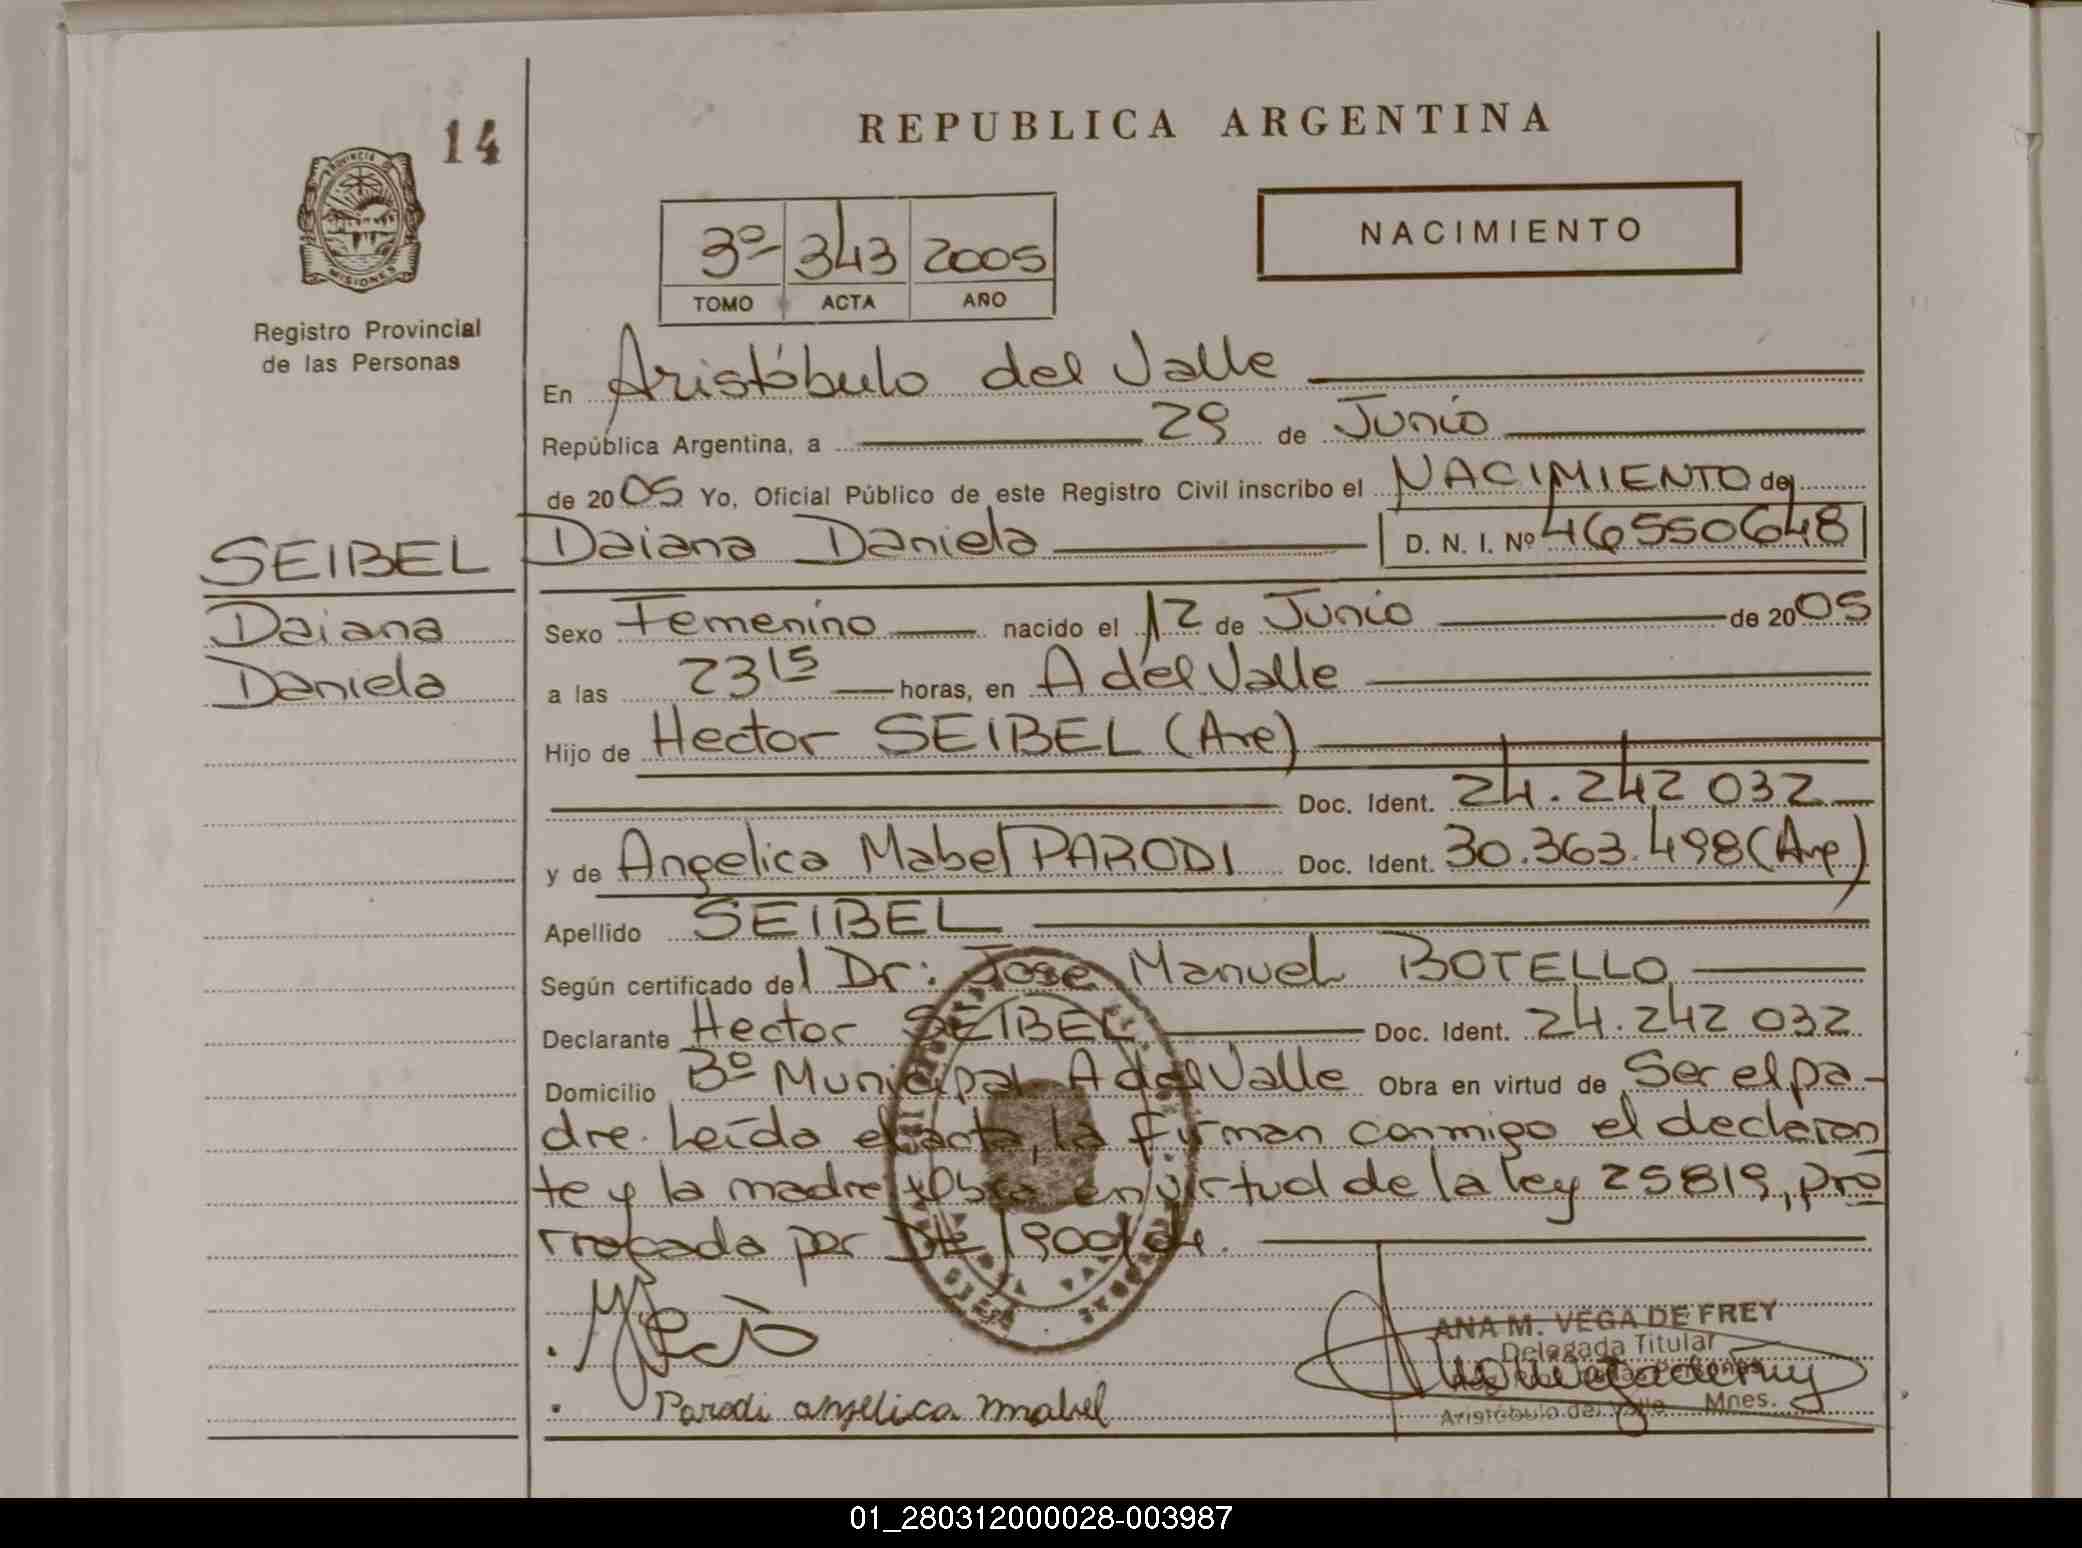 14
REPUBLICA ARGENTINA
PROVINCIA DE
MISIONES
Registro Provincial
de las Personas
3º 343 2005
TOMO ACTA AÑO
NACIMIENTO
En Aristóbulo del Valle
República Argentina, a 29 de Junio
de 2005 Yo, Oficial Público de este Registro Civil inscribo el NACIMIENTO de
SEIBEL
Daiana Daniela D. N. I. Nº 46550648
Daiana
Daniela
Sexo Femenino nacido el 12 de Junio de 2005
a las 23 15 horas, en A del Valle
Hijo de Hector SEIBEL (Are)
Doc. Ident. 24.242 032
y de Angelica Mabel PARODI Doc. Ident. 30.363.498 (Are)
Apellido SEIBEL
Según certificado del Dr: Jose Manuel BOTELLO
Declarante Hector SEIBEL Doc. Ident. 24.242 032
Domicilio Bº Municipal A del Valle Obra en virtud de Ser el pa-
dre. Leída el acta, la firman conmigo el declaran
te y la madre en virtud de la ley 25819, pro
rrogada por
Parodi angelica mabel
ANA M. VEGA DE FREY
Delegada Titular
Aristóbulo del Valle Mnes.
01_280312000028-003987